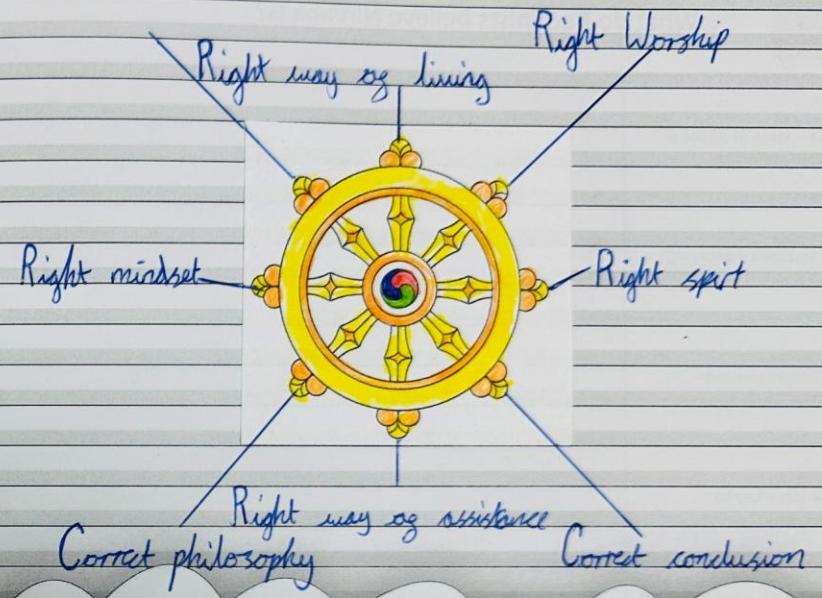 Right Worship
Right way of living
Right mindset
Right spirt
Right way of assistance
Correct philosophy
Correct conclusion